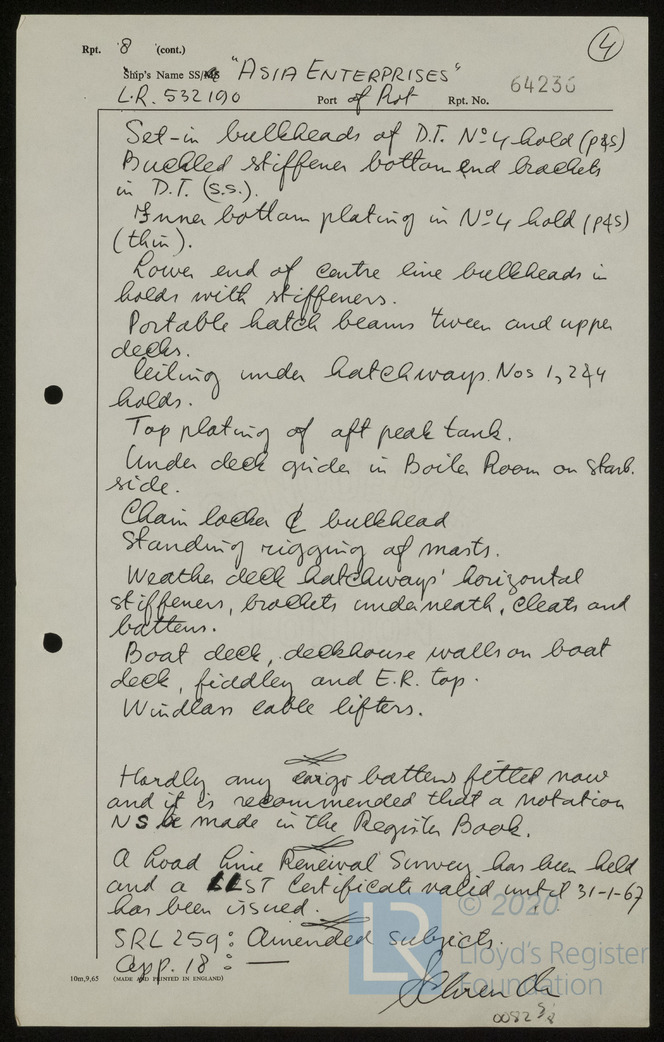 Rpt. 8 (cont.)
4
Ship's Name SS/MS "ASIA ENTERPRISES"
64236
L.R. 532190 Port of Prt Rpt. No.
Set-in bulkheads of D.T. Nº4 hold (p&s)
Buckled stiffener bottom end brackets
in D.T. (s.s.).
Inner bottom plating in Nº4 hold (p&s)
(thin).
Lower end of centre line bulkheads in
holds with stiffeners.
Portable hatch beams 'tween and upper
decks.
Ceiling under hatchways. Nos 1, 2 & 4
holds.
Top plating of aft peak tank.
Under deck girder in Boiler Room on starb.
side.
Chain locker ₵ bulkhead
Standing rigging of masts.
Weather deck hatchways' horizontal
stiffeners, brackets underneath, cleats and
battens.
Boat deck, deckhouse walls on boat
deck, fiddley and E.R. top.
Windlass cable lifters.
Hardly any cargo battens fitted now
and it is recommended that a notation
NS be made in the Register Book.
A Load Line Renewal Survey has been held
and a LLST Certificate valid until 31-1-67
has been issued.
SRL 259: Amended subjects.
App. 18: —
10m,9,65 (MADE AND PRINTED IN ENGLAND)
0082
LR
© 2020
Lloyd's Register
Foundation